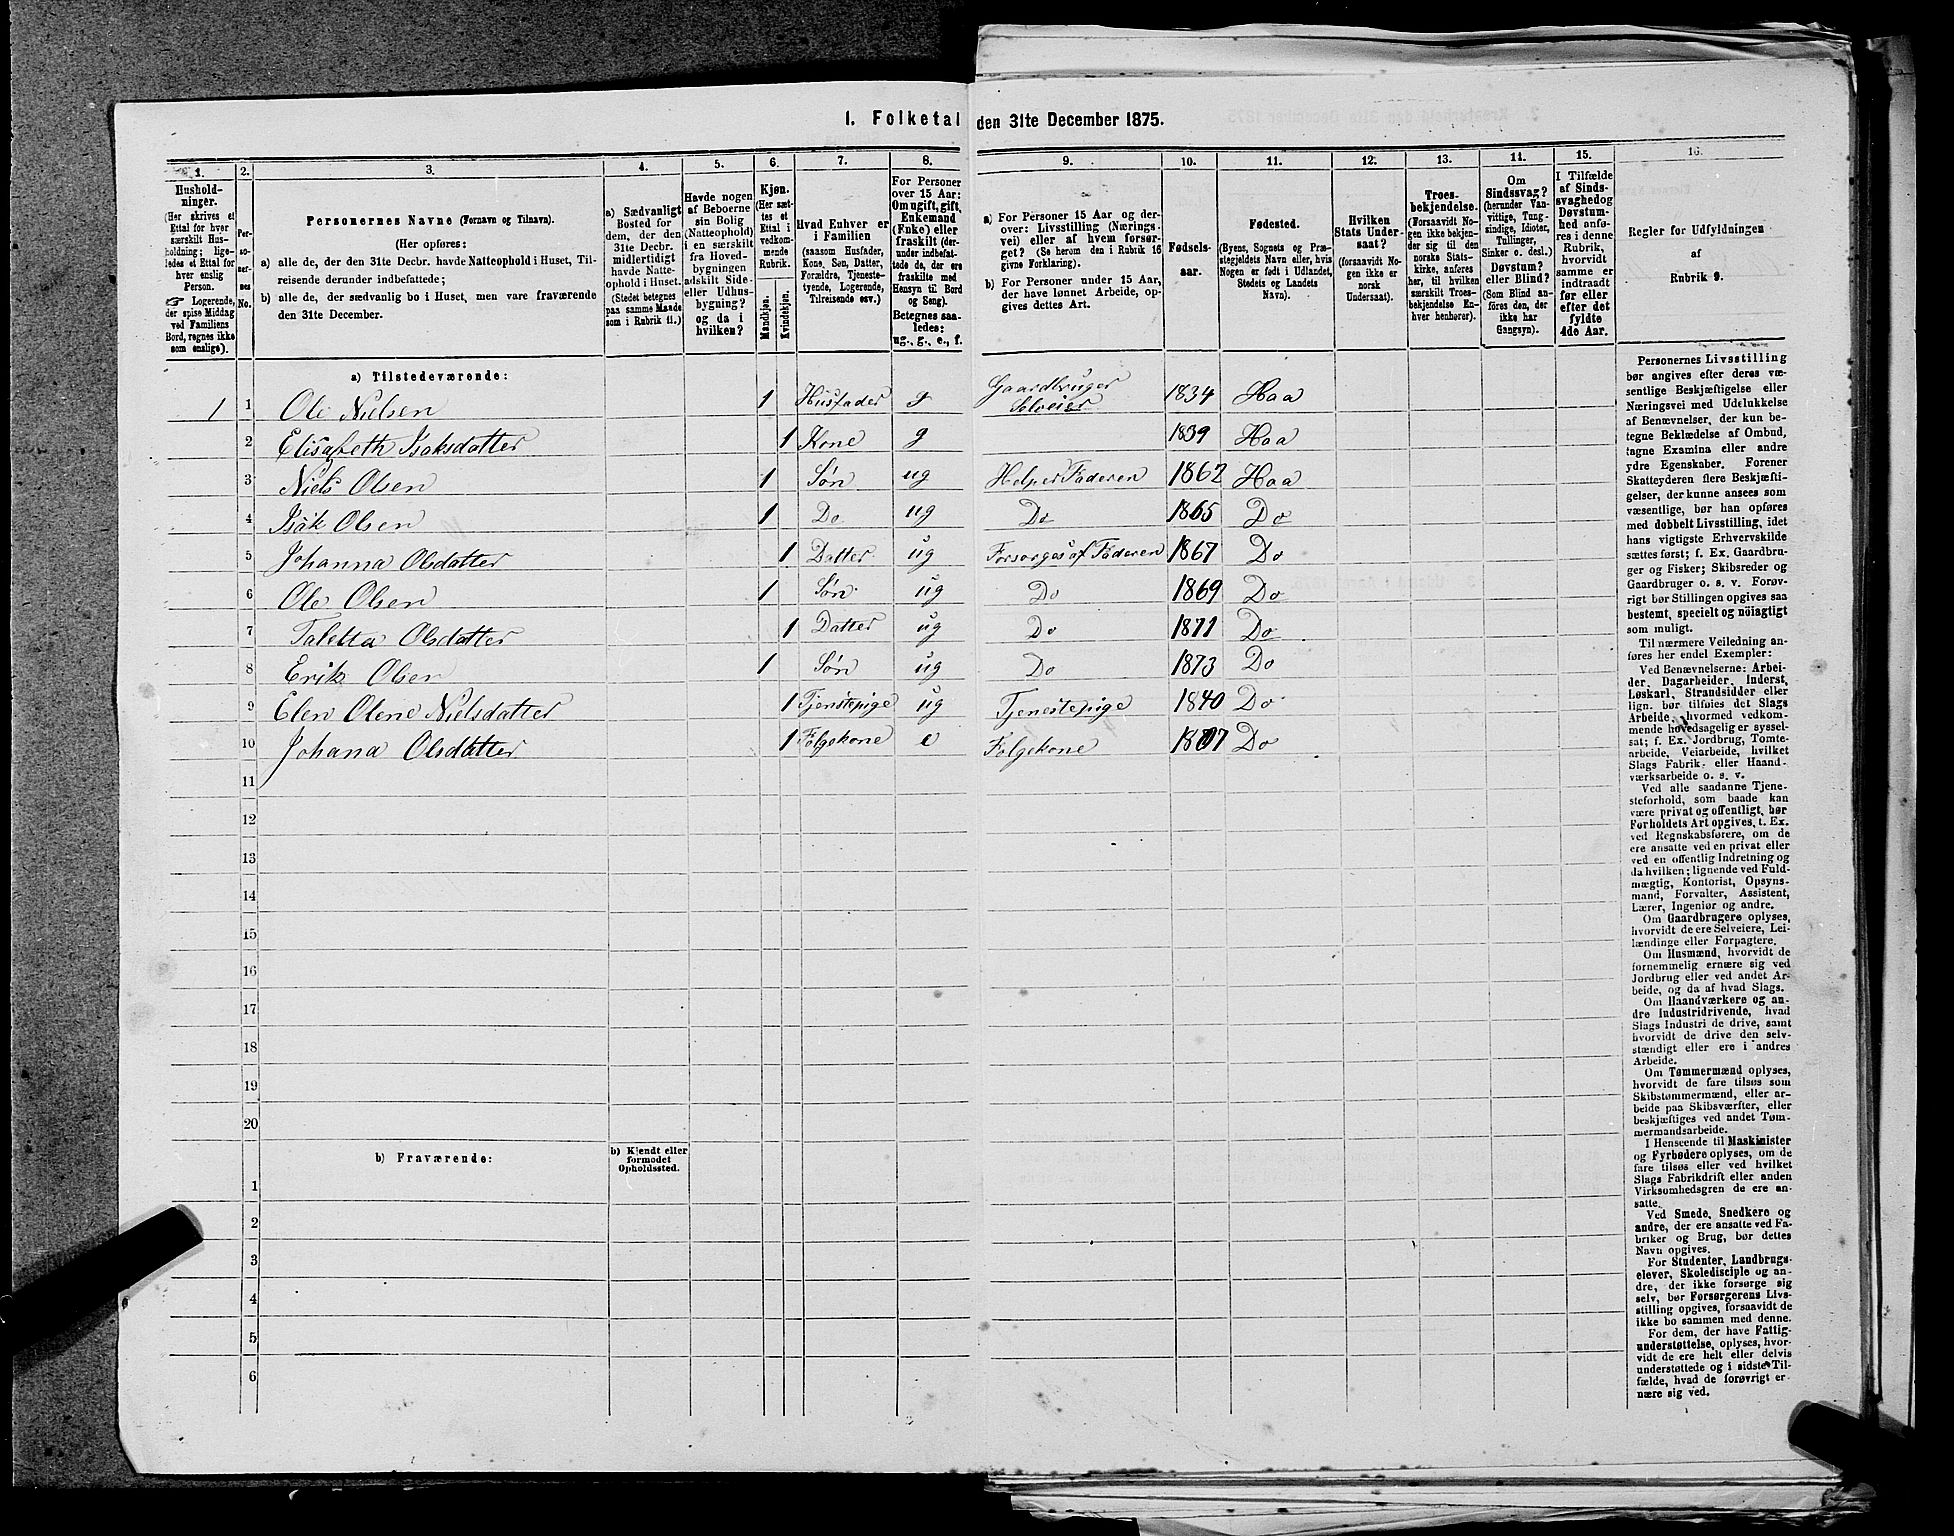 1. Folketal den 31te December 1875.
1. 2. 3. 4. 5. 6. 7. 8. 9. 10. 11. 12. 13. 14. 15. 16.
Hushold-
ninger.
(Her skrives et
Ettal for hver
særskilt Hus-
holdning; lige-
ledes et Ettal for
hver enslig
Person.
☞ Logerende,
der spise Middag
ved Familiens
Bord, regnes ikke
som enslige).
Per-
so-
ner-
nes
No.
Personernes Navne (Fornavn og Tilnavn).
(Her opføres:
a) alle de, der den 31te Decbr. havde Natteophold i Huset, Til-
reisende derunder indbefattede;
b) alle de, der sædvanlig bo i Huset, men vare fraværende
den 31te December.
a) Sædvanligt
Bosted for
dem, der den
31te Decbr.
midlertidigt
havde Natte-
ophold i Huset.
(Stedet betegnes
paa samme Maade
som i Rubrik 11.)
Havde nogen
af Beboerne
sin Bolig
(Natteophold)
i en særskilt
fra Hoved-
bygningen
adskilt Side-
eller Udhus-
bygning?
og da i
hvilken?
Kjøn.
(Her sæt-
tes et
Ettal i
vedkom-
mende
Rubrik.
Mandkjøn.
Kvindekjøn.
Hvad Enhver er
i Familien
(saasom Husfader,
Kone, Søn, Datter,
Forældre, Tjeneste-
tyende, Logerende,
Tilreisende osv.)
For Personer
over 15 Aar:
Om ugift, gift,
Enkemand
(Enke) eller
fraskilt (der-
under indbefat-
tede de, der ere
fraskilte med
Hensyn til Bord
og Seng).
Betegnes saa-
ledes:
ug., g., e., f.
a) For Personer 15 Aar og der-
over: Livsstilling (Nærings-
vei) eller af hvem forsør-
get? (Se herom den i Rubrik 16
givne Forklaring).
b) For Personer under 15 Aar,
der have lønnet Arbeide, op-
gives dettes Art.
Fødsels-
aar.
Fødested.
(Byens, Sognets og Præ-
stegjeldets Navn eller, hvis
Nogen er født i Udlandet,
Stedets og Landets
Navn).
Hvilken
Stats Under-
saat?
(forsaavidt No-
gen ikke er
norsk
Undersaat).
Troes-
bekjendelse.
(Forsaavidt No-
gen ikke bekjen-
der sig til den
norske Stats-
kirke, anføres
her, til hvilken
særskilt Troes-
bekjendelse En-
hver henhører).
Om
Sindssvag?
(herunder Van-
vittige, Tung-
sindige, Idioter,
Tullinger,
Sinker o. desl.)
Døvstum?
eller Blind?
(Som Blind an-
føres den, der
ikke har
Gangsyn).
I Tilfælde
af Sinds-
svaghed og
Døvstum-
hed anfø-
res i denne
Rubrik,
hvorvidt
samme er
indtraadt
før eller
efter det
fyldte
4de Aar.
Regler for Udfyldningen
af
Rubrik 9.
a) Tilstedeværende:
1 1 Ole Nielsen 1 Husfader g Gaardbruger Selveier 1834 Haa
2 Elisabeth Isaksdatter 1 Kone g 1839 Haa
3 Niels Olsen 1 Søn ug Helper Faderen 1862 Haa
4 Isak Olsen 1 Do ug Do 1865 Do
5 Johanna Olsdatter 1 Datter ug Forsørges af Faderen 1867 Do
6 Ole Olsen 1 Søn ug Do 1869 Do
7 Taletta Olsdatter 1 Datter ug Do 1871 Do
8 Erik Olsen 1 Søn ug Do 1873 Do
9 Elen Olene Nielsdatter 1 Tjenstepige ug Tjenestepige 1840 Do
10 Johana Olsdatter 1 Følgekone e Følgekone 1807 Do
11
12
13
14
15
16
17
18
19
20
b) Fraværende:
b) Kjendt eller
formodet
Opholdssted.
1
2
3
4
5
6
Personernes Livsstilling
bør angives efter deres væ-
sentlige Beskjæftigelse eller
Næringsvei med Udelukkelse
af Benævnelser, der kun be-
tegne Beklædelse af Ombud,
tagne Examina eller andre
ydre Egenskaber. Forener
Skatteyderen flere Beskjæfti-
gelser, der kunne ansees som
væsentlige, bør han opføres
med dobbelt Livsstilling, idet
hans vigtigste Erhvervskilde
sættes først; f. Ex. Gaardbru-
ger og Fisker; Skibsreder og
Gaardbruger o. s. v. Forøv-
rigt bør Stillingen opgives saa
bestemt, specielt og nöiagtigt
som muligt.
Til nærmere Veiledning an-
føres her endel Exempler:
Ved Benævnelserne: Arbei-
der, Dagarbeider, Inderst,
Løskarl, Strandsidder eller
lign. bør tilføies det Slags
Arbeide, hvormed vedkom-
mende hovedsagelig er syssel-
sat; f. Ex. Jordbrug, Tomte-
arbeide, Veiarbeide, hvilket
Slags Fabrik- eller Haand-
værksarbeide o. s. v.
Ved alle saadanne Tjene-
steforhold, som baade kan
være privat og offentligt, bør
Forholdets Art opgives, t. Ex.
ved Regnskabsførere, om de
ere ansatte ved en privat eller
ved en offentlig Indretning og
da hvilken; lignende ved Fuld-
mægtig, Kontorist, Opsyns-
mand, Forvalter, Assistent,
Lærer, Ingeniør og andre.
Om Gaardbrugere oplyses,
hvorvidt de ere Selveiere, Lei-
lændinge eller Forpagtere.
Om Husmænd, hvorvidt de
fornemmelig ernære sig ved
Jordbrug eller ved andet Ar-
beide, og da af hvad Slags.
Om Haandværkere og an-
dre Industridrivende, hvad
Slags Industri de drive, samt
hvorvidt de drive den selv-
stændigt eller ere i andres
Arbeide.
Om Tømmermænd oplyses,
hvorvidt de fare tilsøs som
Skibstømmermænd, eller ar-
beide paa Skibsværfter, eller
beskjæftiges ved andet Tøm-
mermandsarbeide.
I Henseende til Maskinister
og Fyrbødere oplyses, om de
fare tilsøs eller ved hvilket
Slags Fabrikdrift eller anden
Virksomhedsgren de ere an-
satte.
Ved Smede, Snedkere og
andre, der ere ansatte ved Fa-
briker og Brug, bør dettes
Navn opgives.
For Studenter, Landbrugs-
elever, Skoledisciple og an-
dre, der ikke forsørge sig
selv, bør Forsørgerens Livs-
stilling opgives, forsaavidt de
ikke bo sammen med denne.
For dem, der have Fattig-
understøttelse, oplyses, hvor-
vidt de ere helt eller delvis
understøttede og i sidste Til-
fælde, hvad de forøvrigt er-
nære sig ved.